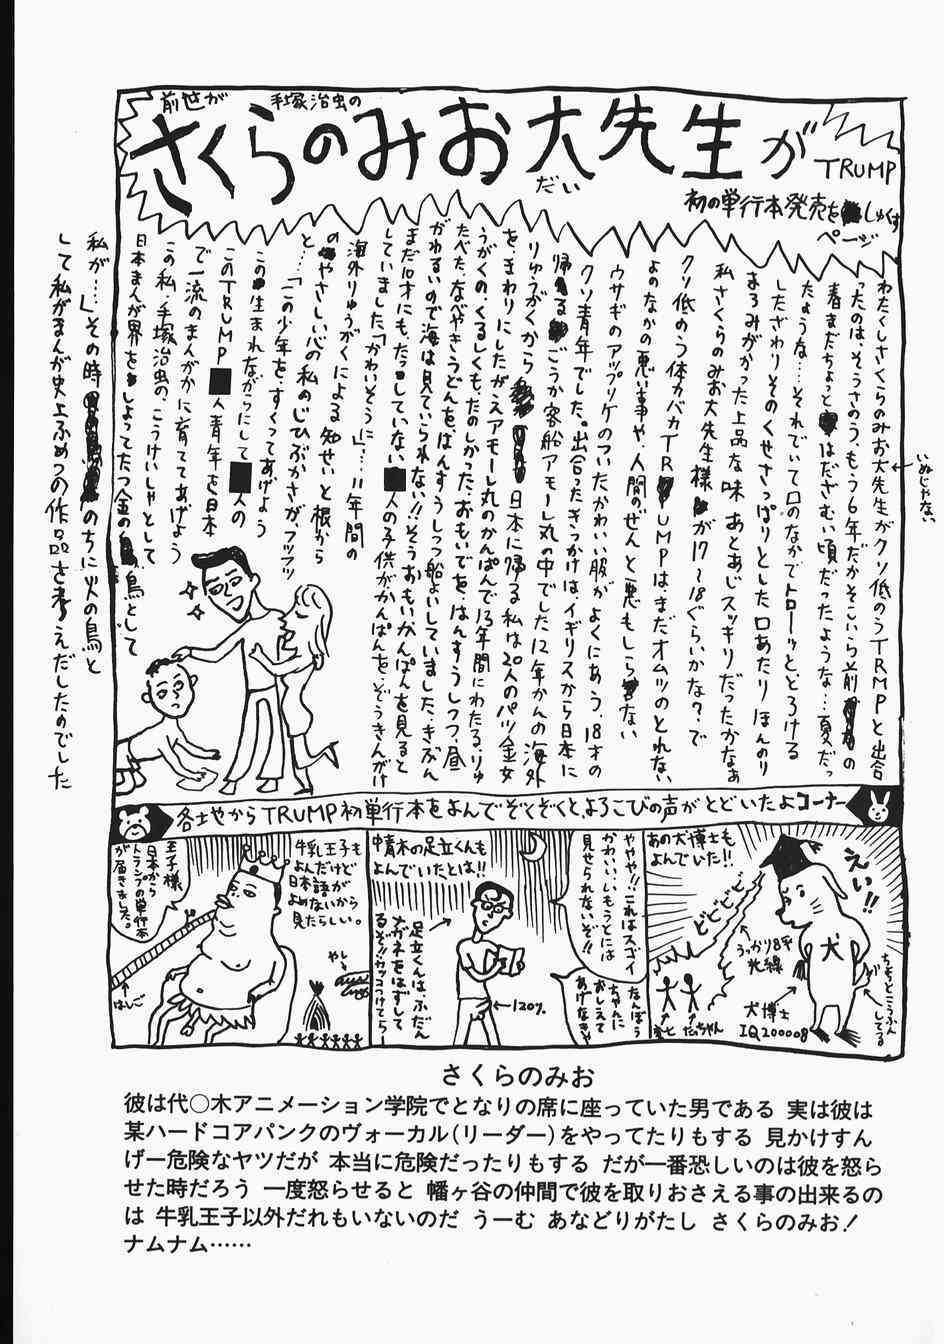 前世が
手塚治虫の
さくらのみお大先生が
だい
TRUMP
初の単行本発売をしゅくす
ページ
いぬじゃない
わたくしさくらのみお大先生がクソ低のうTRUMPと出合
ったのは、そうさのう、もう6年だかそこいら前の
春まだちょっとはだざむい頃だったような…頁だっ
たような…それでいて口のなかでトローッととろける
したざわりそのくせさっぱりとした口あたり ほんのり
まろみがかった上品な味 あとあじスッキリだったかなぁ
私さくらのみお大先生様が17〜18ぐらいかな?で
クソ低のう体力バカTRUMPはまだオムツのとれない
よのなかの悪い事や、人間のぜんと悪もしらない
ウサギのアップリケのついたかわいい服がよくにあう、18才の
クソ青年でした。出合ったきっかけは、イギリスから日本に
帰るごうか客船アモーレ丸の中でした12年かんの海外
りゅうがくから日本に帰る私は20人のパツ金女
をまわりにしたがえアモーレ丸のかんぱんで13年間にわたる、りゅ
うがくの、くるしくも、たのしかった、おもいでを、はんすうしつつ、昼
たべた、なべやきうどんを、はんすうしつつ船よいしていました、きぶん
がわるいので海は見ていられない!!そうおもいかんぱんを見ると
まだ10才にもたっしていない■人の子供がかんぱんを、ぞうきんがけ
していました「かわいそうに」…11年間の
海外りゅうがくによる知せいと根から
のやさしい心の私のじひぶかさが、フツフツ
と…「この少年を、すくってあげよう
この生まれながらにして■人の
このTRUMP■人青年を日本
で一流のまんがかに育ててあげよう
この私、手塚治虫の、こうけいしゃとして
日本まんが界をしょってたつ金の鳥として
私が…」その時のちに火の鳥と
して私がまんが史上ふめつの作品さ考えだしたのでした
各土也からTRUMP初単行本をよんでぞくぞくと、よろこびの声がとどいたよコーナー
えい!!
あの犬博士も
よんでいた!!
どどどど
うっかり8平
光線
犬
ちょっとこうふん
してる
犬博士
IQ200008
だいちゃん
やややっ!!これはスゴイ
かわいい、いもうとには
見せられないぞ!!
なんぼう
ちゃんに
おしえて
あげなきゃ
中青木の足立くんも
よんでいたとは!!
足立くんは、ふだん
メガネをはずして
るぞ!!カッコつけてらー
120%
牛乳王子も
よんだけど
日本語が
よめないから
見たらしい。
王子様
日本から
トランプの単行本
が届きました。
やし
はしご
さくらのみお
彼は代○木アニメーション学院でとなりの席に座っていた男である 実は彼は
某ハードコアパンクのヴォーカル(リーダー)をやってたりもする 見かけすん
げー危険なヤツだが 本当に危険だったりもする だが一番恐しいのは彼を怒ら
せた時だろう 一度怒らせると 幡ヶ谷の仲間で彼を取りおさえる事の出来るの
は 牛乳王子以外だれもいないのだ うーむ あなどりがたし さくらのみお!
ナムナム……